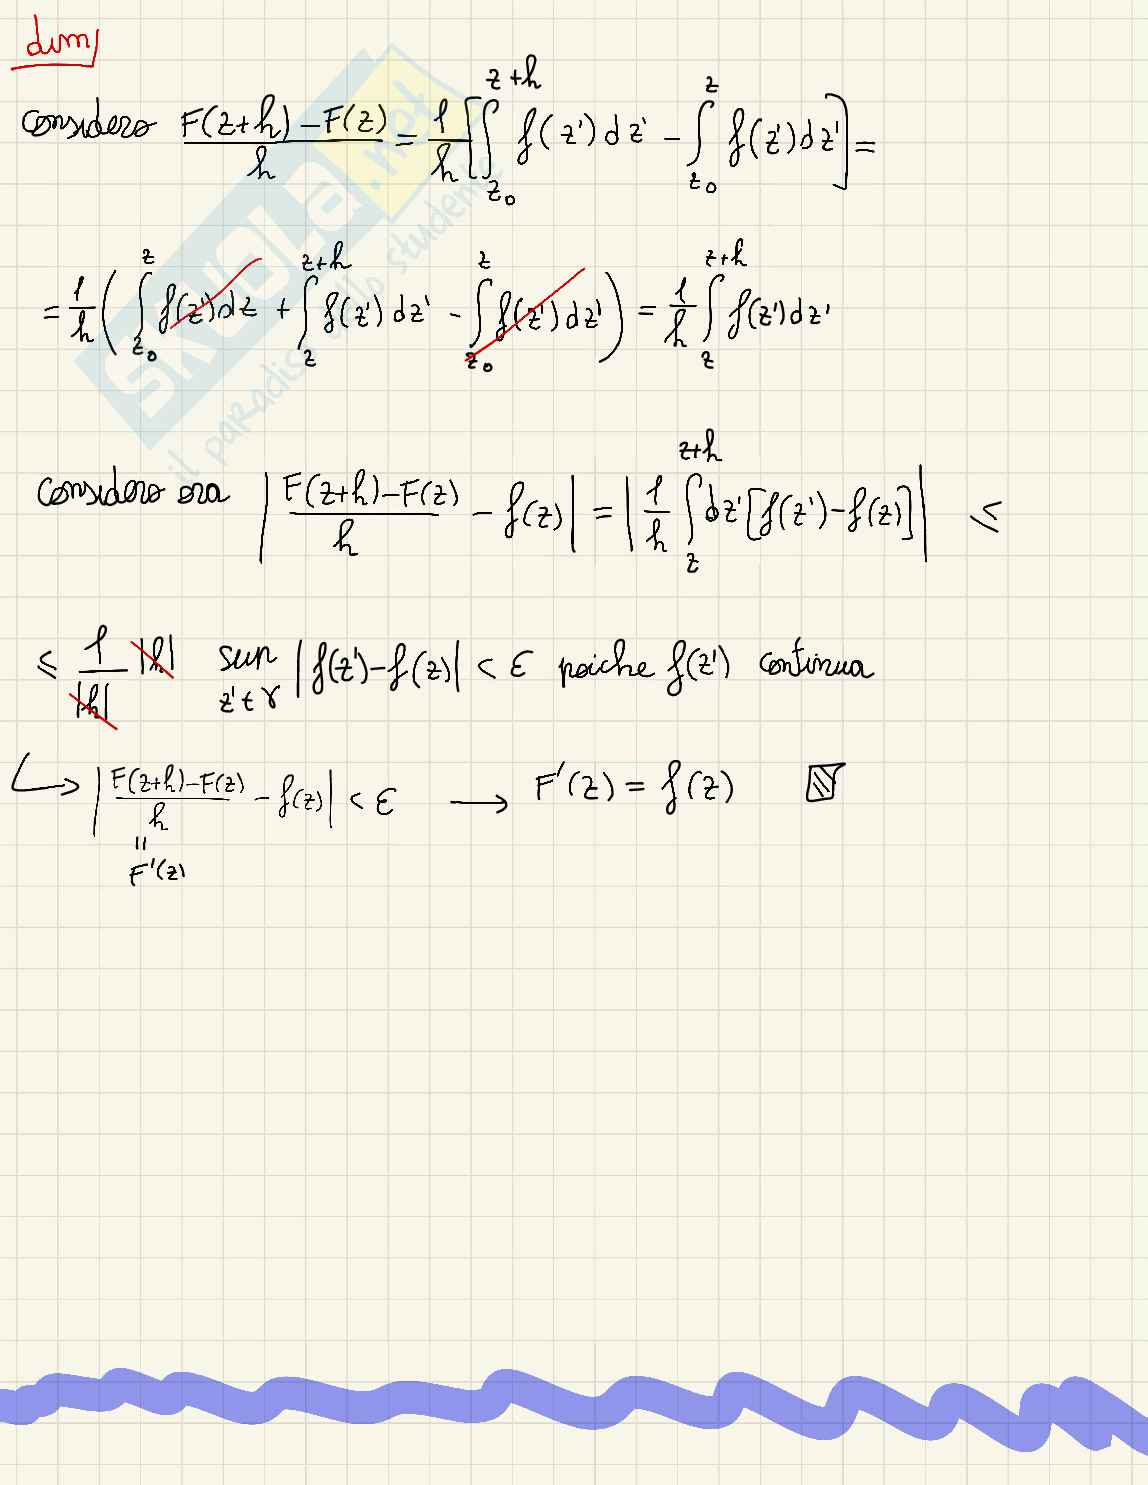 dim
Considero F(z+h) - F(z) / h = 1/h [ ∫_{z₀}^{z+h} f(z')dz' - ∫_{z₀}^{z} f(z')dz' ] =
= 1/h ( ∫_{z₀}^{z} f(z')dz + ∫_{z}^{z+h} f(z')dz' - ∫_{z₀}^{z} f(z')dz' ) = 1/h ∫_{z}^{z+h} f(z')dz'
Considero ora | F(z+h)-F(z) / h - f(z) | = | 1/h ∫_{z}^{z+h} dz' [f(z')-f(z)] | ≤
≤ 1/|h| |h| sup_{z'∈γ} |f(z')-f(z)| < ε poiche f(z') continua
↳ | F(z+h)-F(z) / h - f(z) | < ε → F'(z) = f(z)
=
F'(z)
skuola.net
il paradiso dello studente